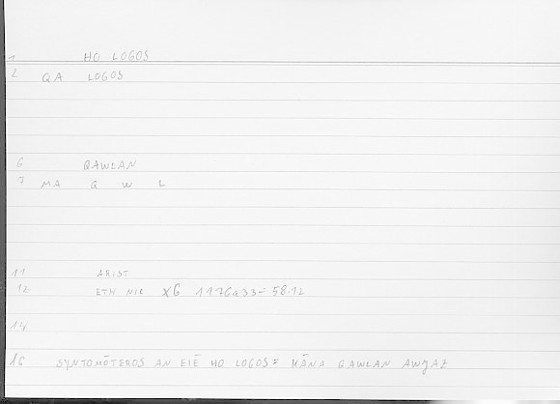 1 HO LOGOS
2 QA LOGOS
6 QAWLAN
7 MA Q W L
11 ARIST
12 ETH NIC X6 1176a33=58.12
14
16 SYNTOMŌTEROS AN EIĒ HO LOGOS = KĀNA QAWLAN AWǦAZ